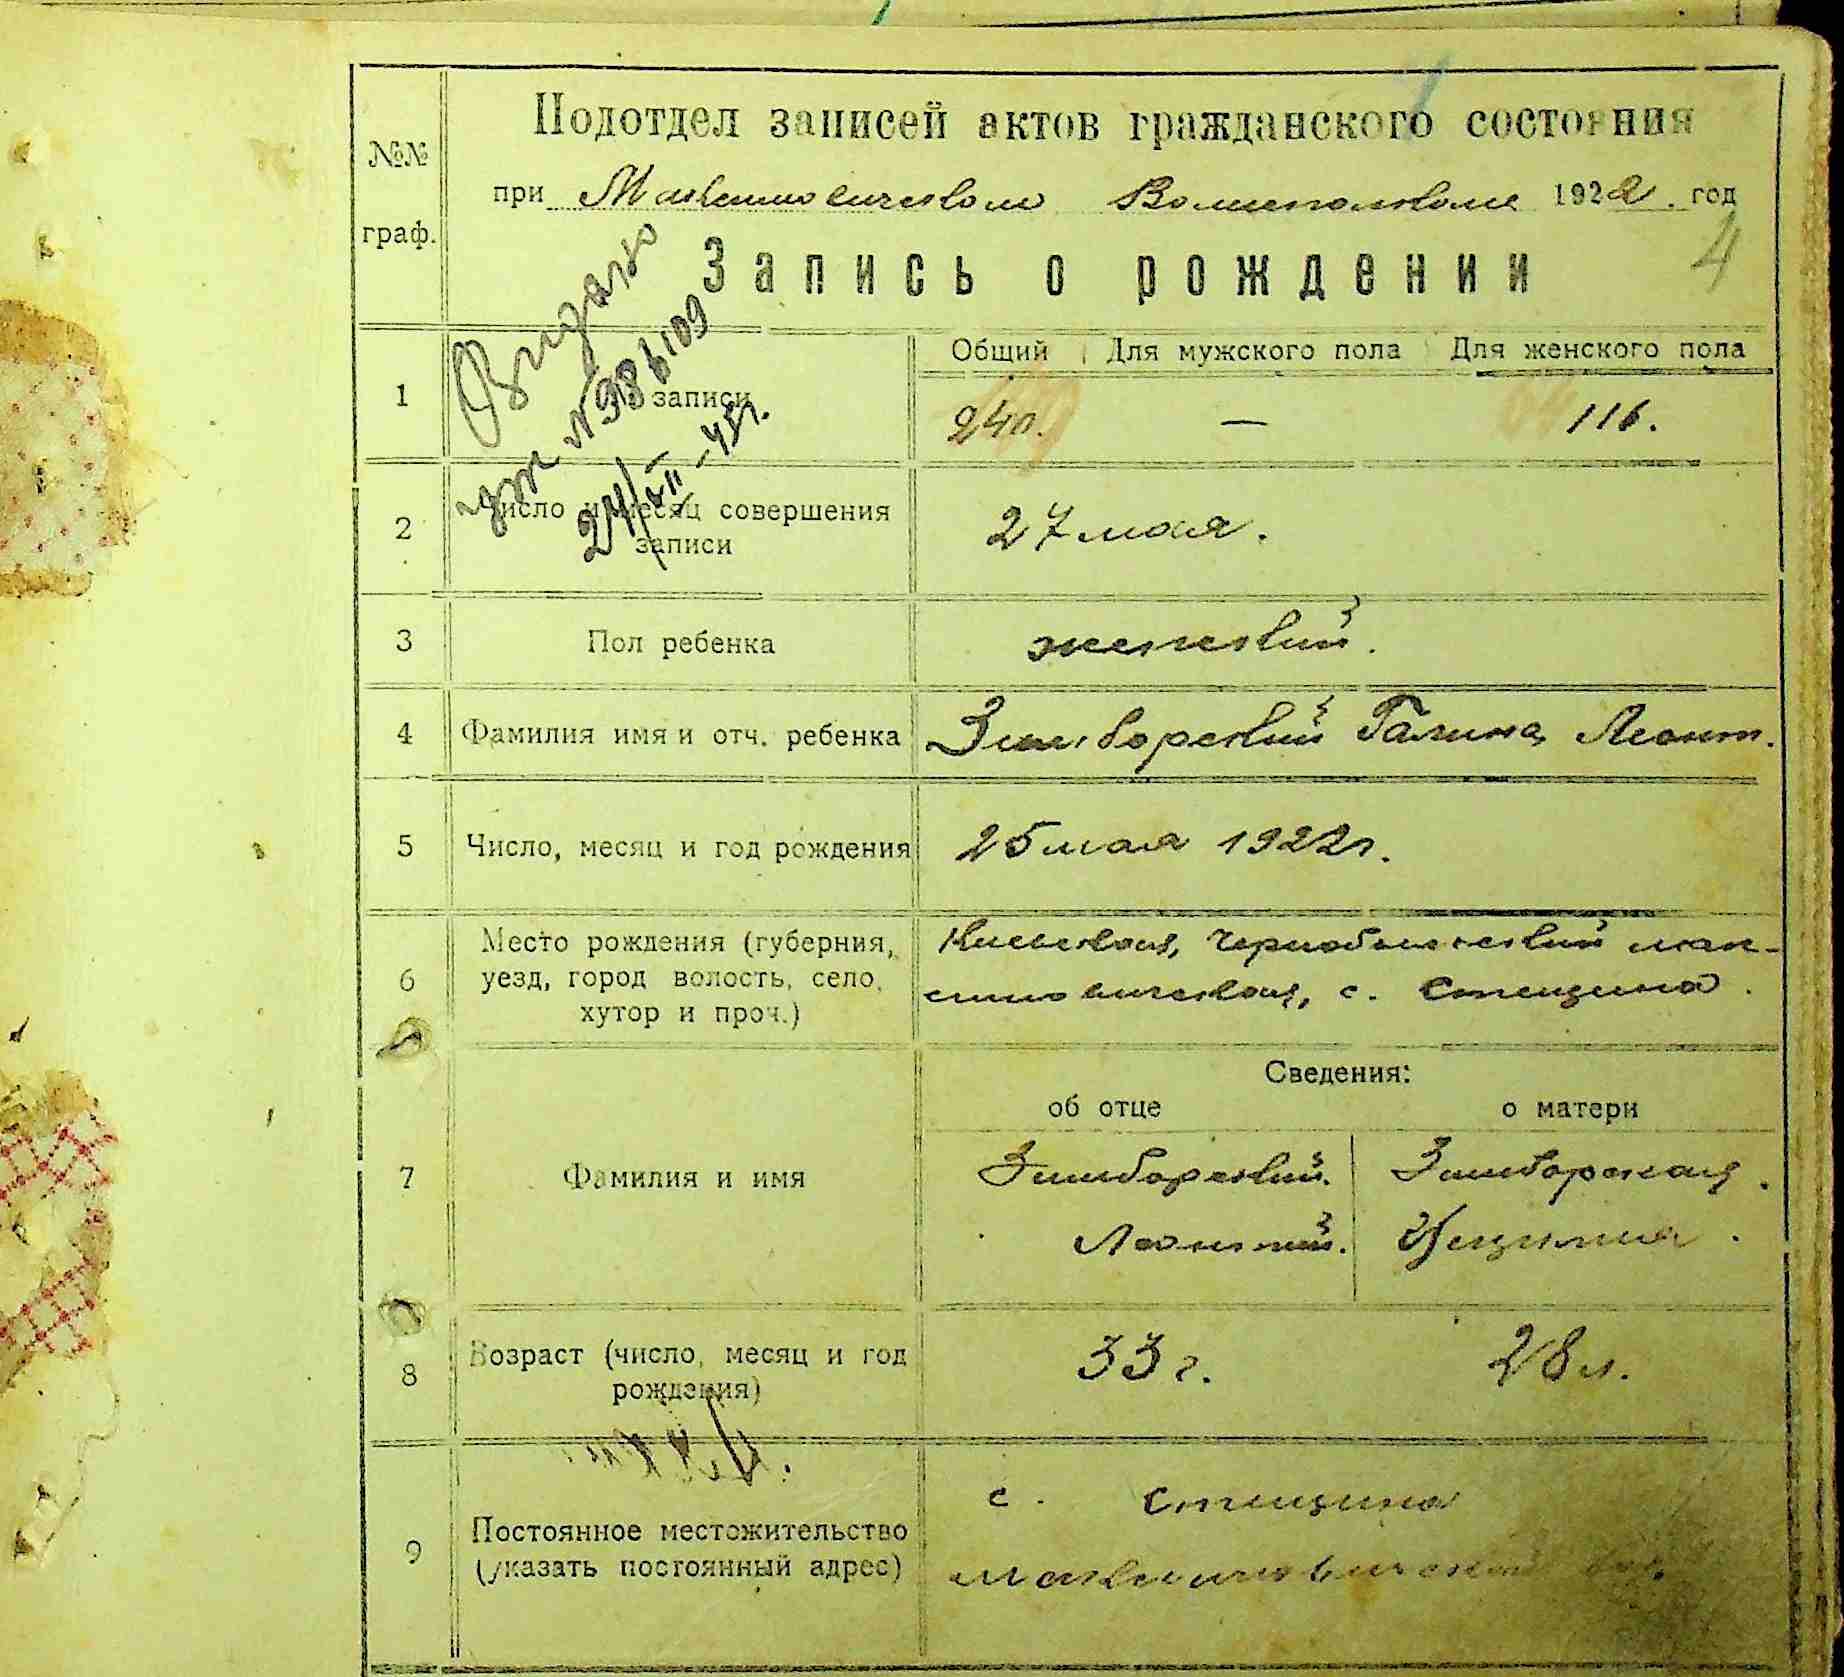 Подотдел записей актов гражданского состояния
№№ граф.
при Максимовическом Волисполкоме 1922. год
4
Запись о рождении
Видано
№ 986109
24/XII-45г.
Общий Для мужского пола Для женского пола
1 записи 240. — 116.
2 Число и месяц совершения 27 мая.
записи
3 Пол ребенка женский.
4 Фамилия имя и отч. ребенка Зимборский Галина Леонт.
5 Число, месяц и год рождения 25 мая 1922г.
6 Место рождения (губерния, Киевская, Чернобыльский мак-
уезд, город волость, село, симовическая, с. Стещина.
хутор и проч.)
Сведения:
об отце о матери
7 Фамилия и имя Зимборский. Зимборская.
Леонтий. Цецилия.
8 Возраст (число, месяц и год 33 г. 28 л.
рождения)
9 Постоянное местожительство с. Стещина
(указать постоянный адрес) Максимовической вол.